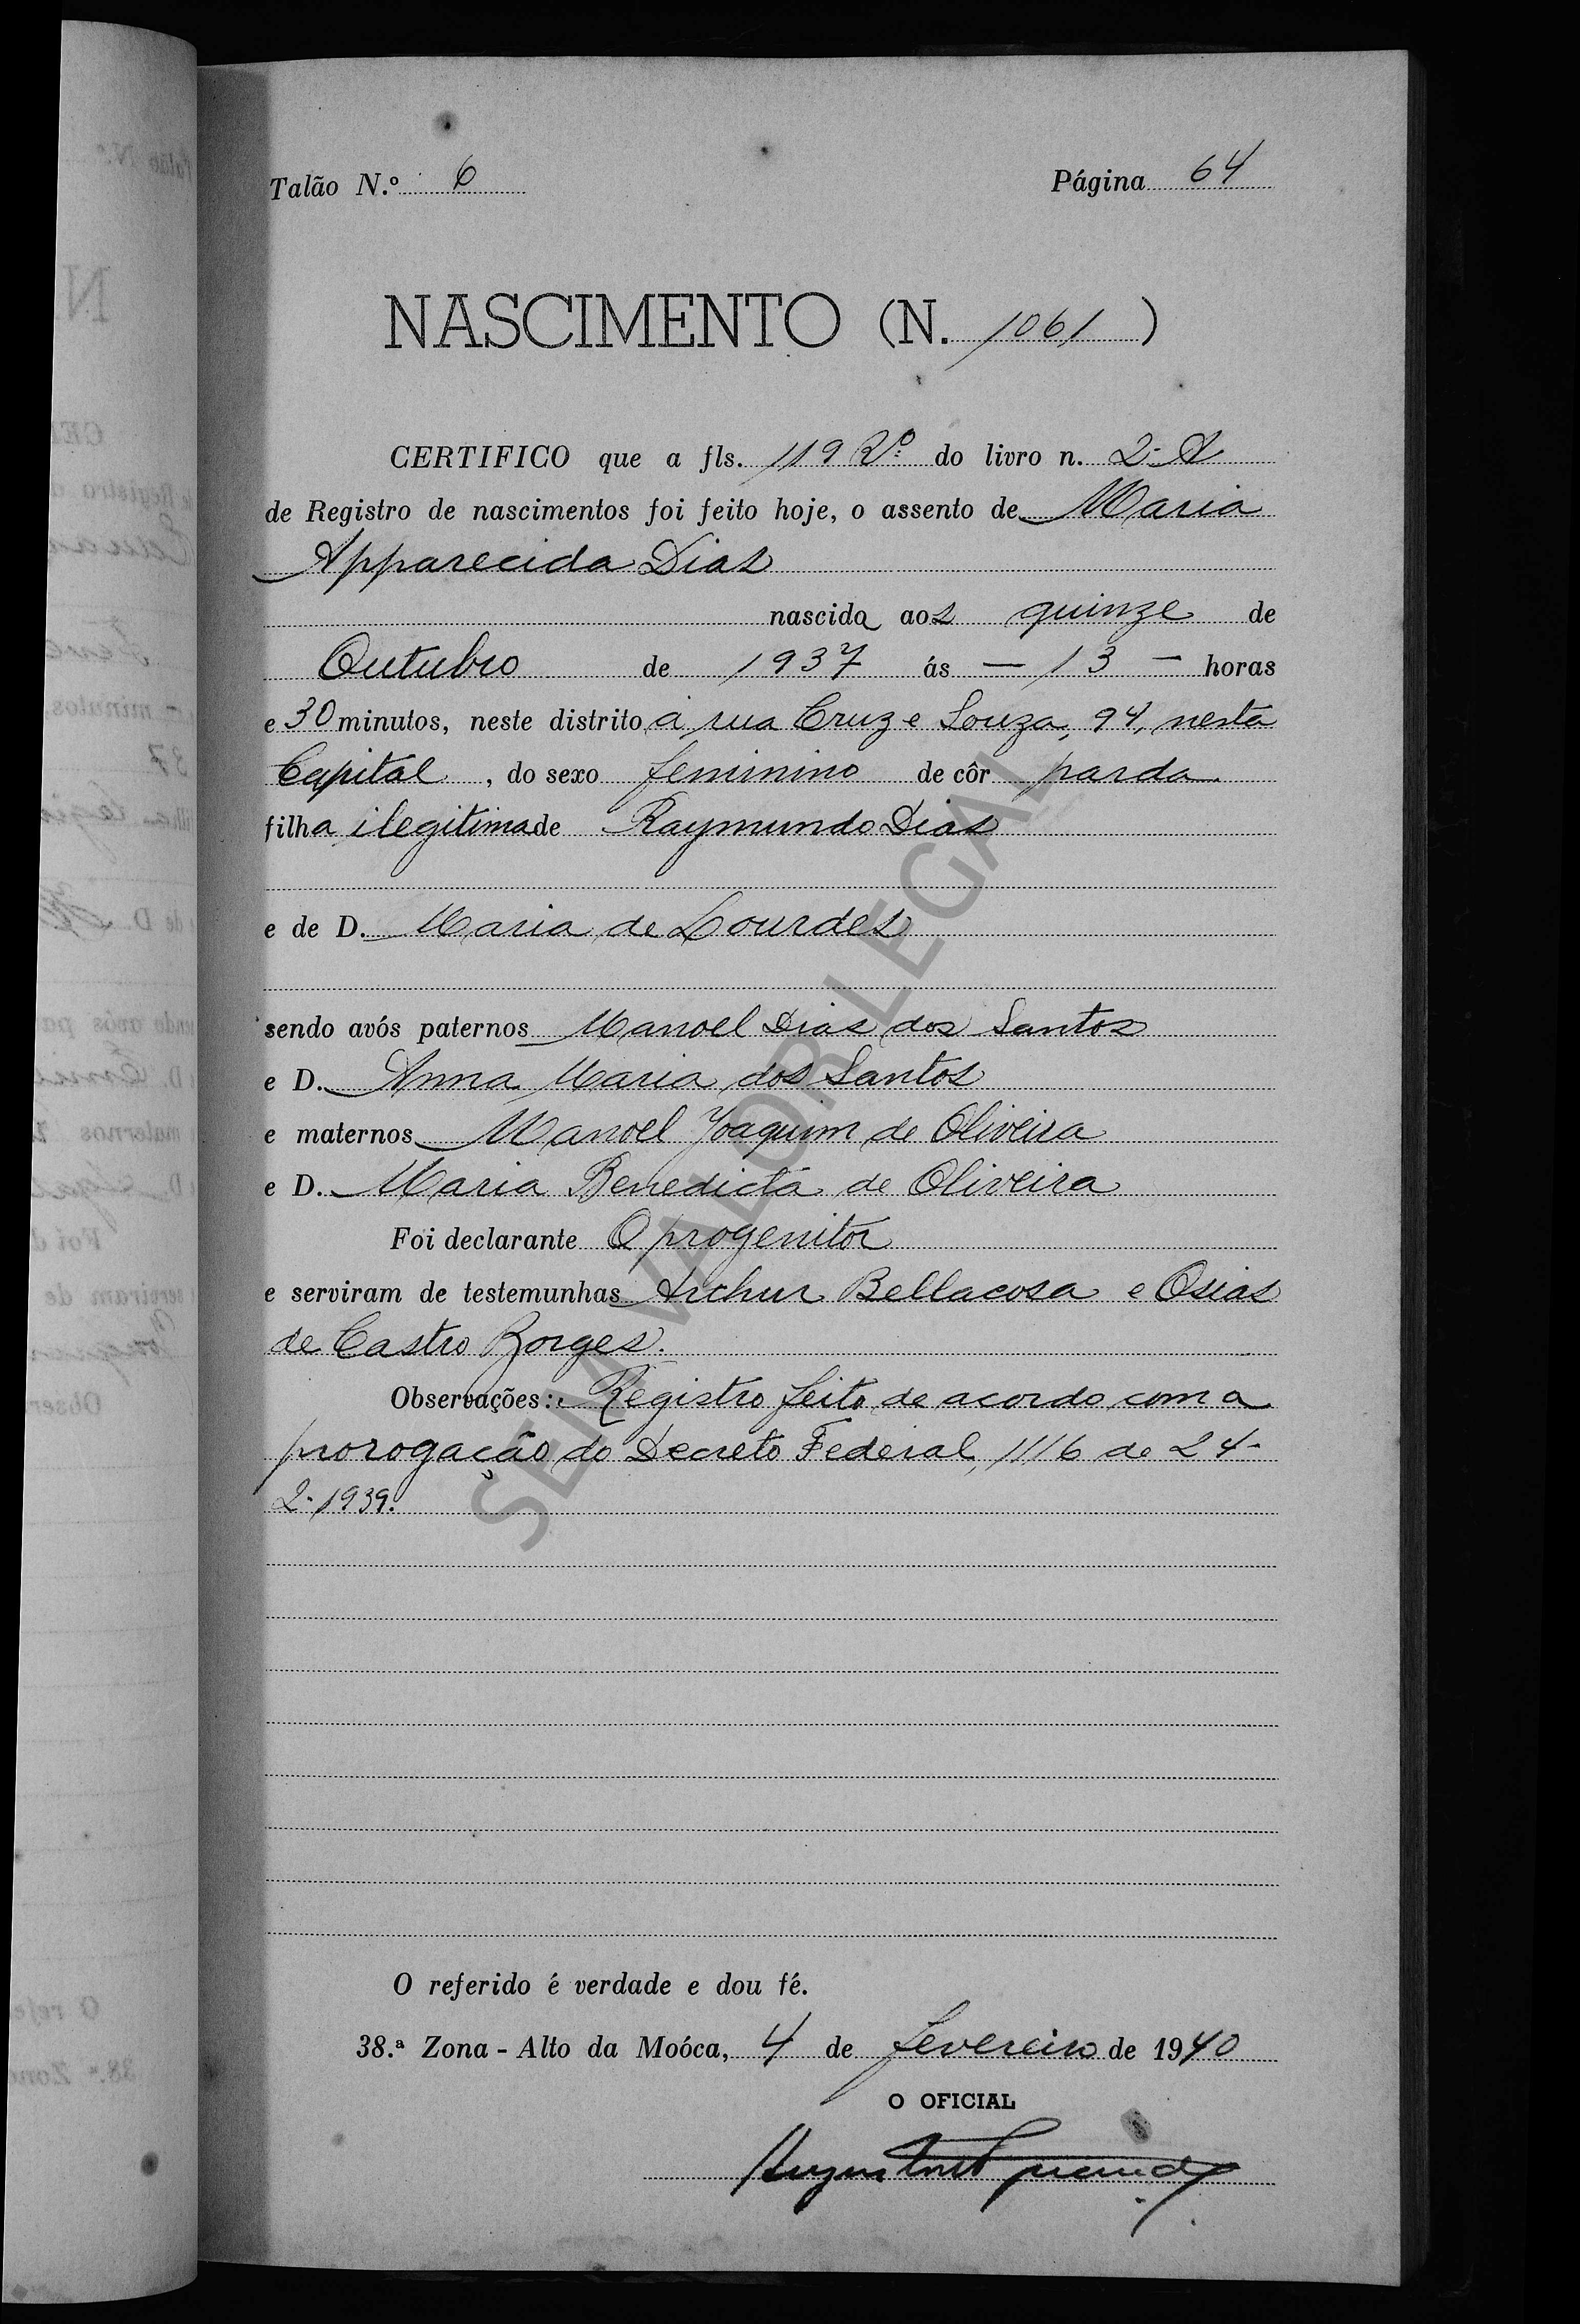 Talão N.º 6 Página 64
NASCIMENTO (N. 1061 )
CERTIFICO que a fls. 119 Vº do livro n. 2-A
de Registro de nascimentos foi feito hoje, o assento de Maria
Apparecida Dias
nascida aos quinze de
Outubro de 1937 ás — 13 — horas
e 30 minutos, neste distrito á rua Cruz e Souza, 94, nesta
Capital , do sexo feminino de côr parda
filha ilegitima de Raymundo Dias
e de D. Maria de Lourdes
sendo avós paternos Manoel Dias dos Santos
e D. Anna Maria dos Santos
e maternos Manoel Joaquim de Oliveira
e D. Maria Benedicta de Oliveira
Foi declarante O progenitor
e serviram de testemunhas Arthur Bellacosa e Osias
de Castro Borges.
Observações: Registro feito de acordo com a
prorogação do Decreto Federal, 1116 de 24-
2-1939.
SEM VALOR LEGAL
O referido é verdade e dou fé.
38.ª Zona - Alto da Moóca, 4 de fevereiro de 1940
O OFICIAL